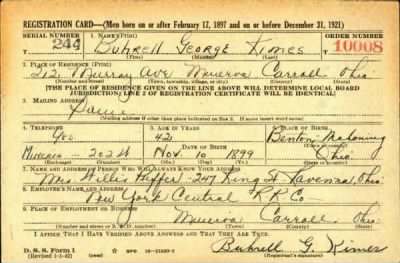 REGISTRATION CARD—(Men born on or after February 17, 1897 and on or before December 31, 1921)
SERIAL NUMBER 1. NAME (Print) ORDER NUMBER
244 Buhrell George Kimes 10008
(First) (Middle) (Last)
2. PLACE OF RESIDENCE (Print)
212 Murray Ave Minerva Carroll Ohio
(Number and street) (Town, township, village, or city) (County) (State)
[THE PLACE OF RESIDENCE GIVEN ON THE LINE ABOVE WILL DETERMINE LOCAL BOARD
JURISDICTION; LINE 2 OF REGISTRATION CERTIFICATE WILL BE IDENTICAL]
3. MAILING ADDRESS
Same
[Mailing address if other than place indicated on line 2. If same insert word same]
4. TELEPHONE 5. AGE IN YEARS 6. PLACE OF BIRTH
Yes 42 Benton Mahoning
DATE OF BIRTH
Minerva - 202 Nov. 10 1899 Ohio
(Exchange) (Number) (Mo.) (Day) (Yr.) (State or country)
7. NAME AND ADDRESS OF PERSON WHO WILL ALWAYS KNOW YOUR ADDRESS
Mrs. Willis - 247 King St. Ravenna, Ohio
8. EMPLOYER'S NAME AND ADDRESS
New York Central R.R. Co
9. PLACE OF EMPLOYMENT OR BUSINESS
Minerva Carroll Ohio
(Number and street or R. F. D. number) (Town) (County) (State)
I AFFIRM THAT I HAVE VERIFIED ABOVE ANSWERS AND THAT THEY ARE TRUE.
D. S. S. Form 1 Buhrell G. Kimes
(Revised 1-1-42) (over) (Registrant's signature)